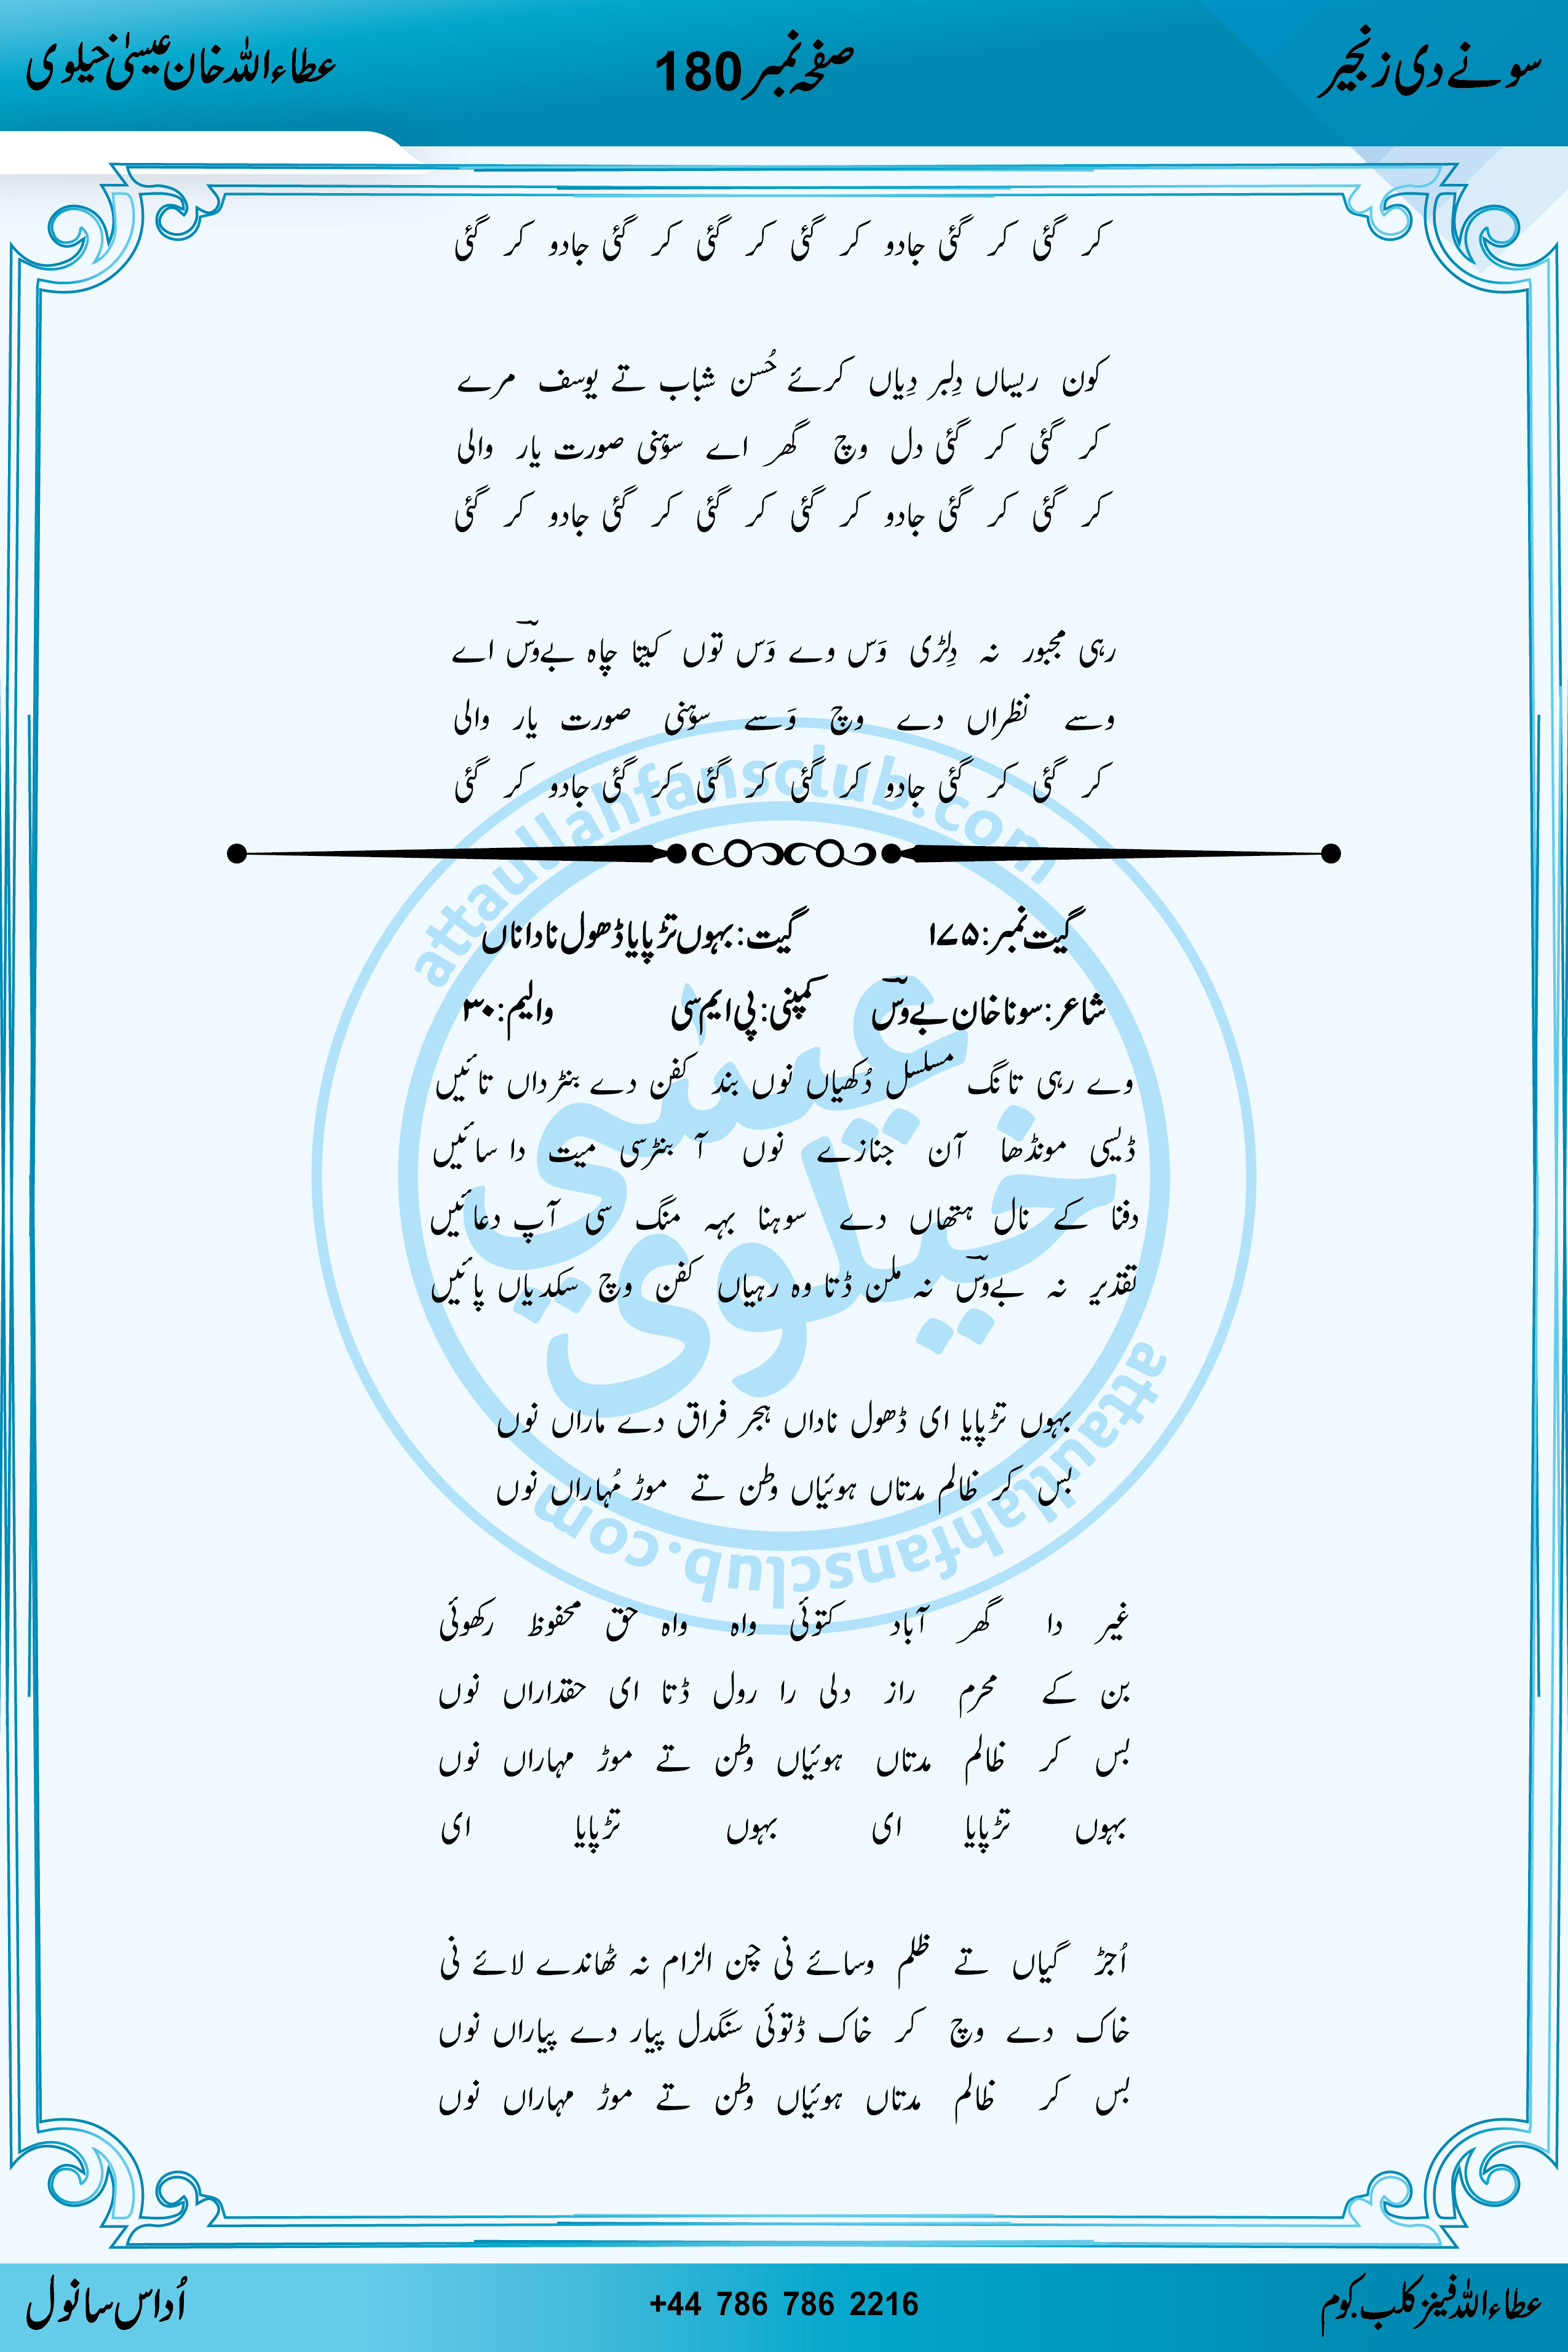 سونے دی زنجیر صفحہ نمبر 180 عطاءاللہ خان عیسیٰ خیلوی
کر گئی کر گئی جادو کر گئی کر گئی کر گئی جادو کر گئی
کون ریساں دِلبر دِیاں کرئے حُسن شباب تے یوسف مرے
کر گئی کر گئی دل وچ گھر اے سوہنی صورت یار والی
کر گئی کر گئی جادو کر گئی کر گئی کر گئی جادو کر گئی
رہی مجبور نہ دِلڑی وَس وے وَس توں کیتا چاہ بےوسؔ اے
وسے نظراں دے وچ وَسے سوہنی صورت یار والی
کر گئی کر گئی جادو کر گئی کر گئی کر گئی جادو کر گئی
گیت نمبر: ۱۷۵ گیت: بہوں تڑپایا ڈھول ناداناں
شاعر: سونا خان بےوسؔ کمپنی: پی ایم سی والیم: ۳۰
وے رہی تانگ مسلسل دُکھیاں نوں بند کفن دے بنڑداں تائیں
ڈیسی مونڈھا آن جنازے نوں آ بنڑسی میت دا سائیں
دفنا کے نال ہتھاں دے سوہنا بہہ منگ سی آپ دعائیں
تقدیر نہ بےوسؔ نہ ملن ڈتا وہ رہیاں کفن وچ سکدیاں پائیں
بہوں تڑپایا ای ڈھول ناداں ہجر فراق دے ماراں نوں
بس کر ظالم مدتاں ہوئیاں وطن تے موڑ مُہاراں نوں
غیر دا گھر آباد کتوئی واہ واہ حق محفوظ رکھوئی
بن کے محرم راز دلی را رول ڈتا ای حقداراں نوں
بس کر ظالم مدتاں ہوئیاں وطن تے موڑ مہاراں نوں
بہوں تڑپایا ای بہوں تڑپایا ای
اُجڑ گیاں تے ظلم وسائے نی چن الزام نہ ٹھاندے لائے نی
خاک دے وچ کر خاک ڈتوئی سنگدل پیار دے پیاراں نوں
بس کر ظالم مدتاں ہوئیاں وطن تے موڑ مہاراں نوں
attaullahfansclub.com
عیسیٰ
خیلوی
attaullahfansclub.com
عطاءاللہ فینز کلب۔کوم +44 786 786 2216 اُداس سانول